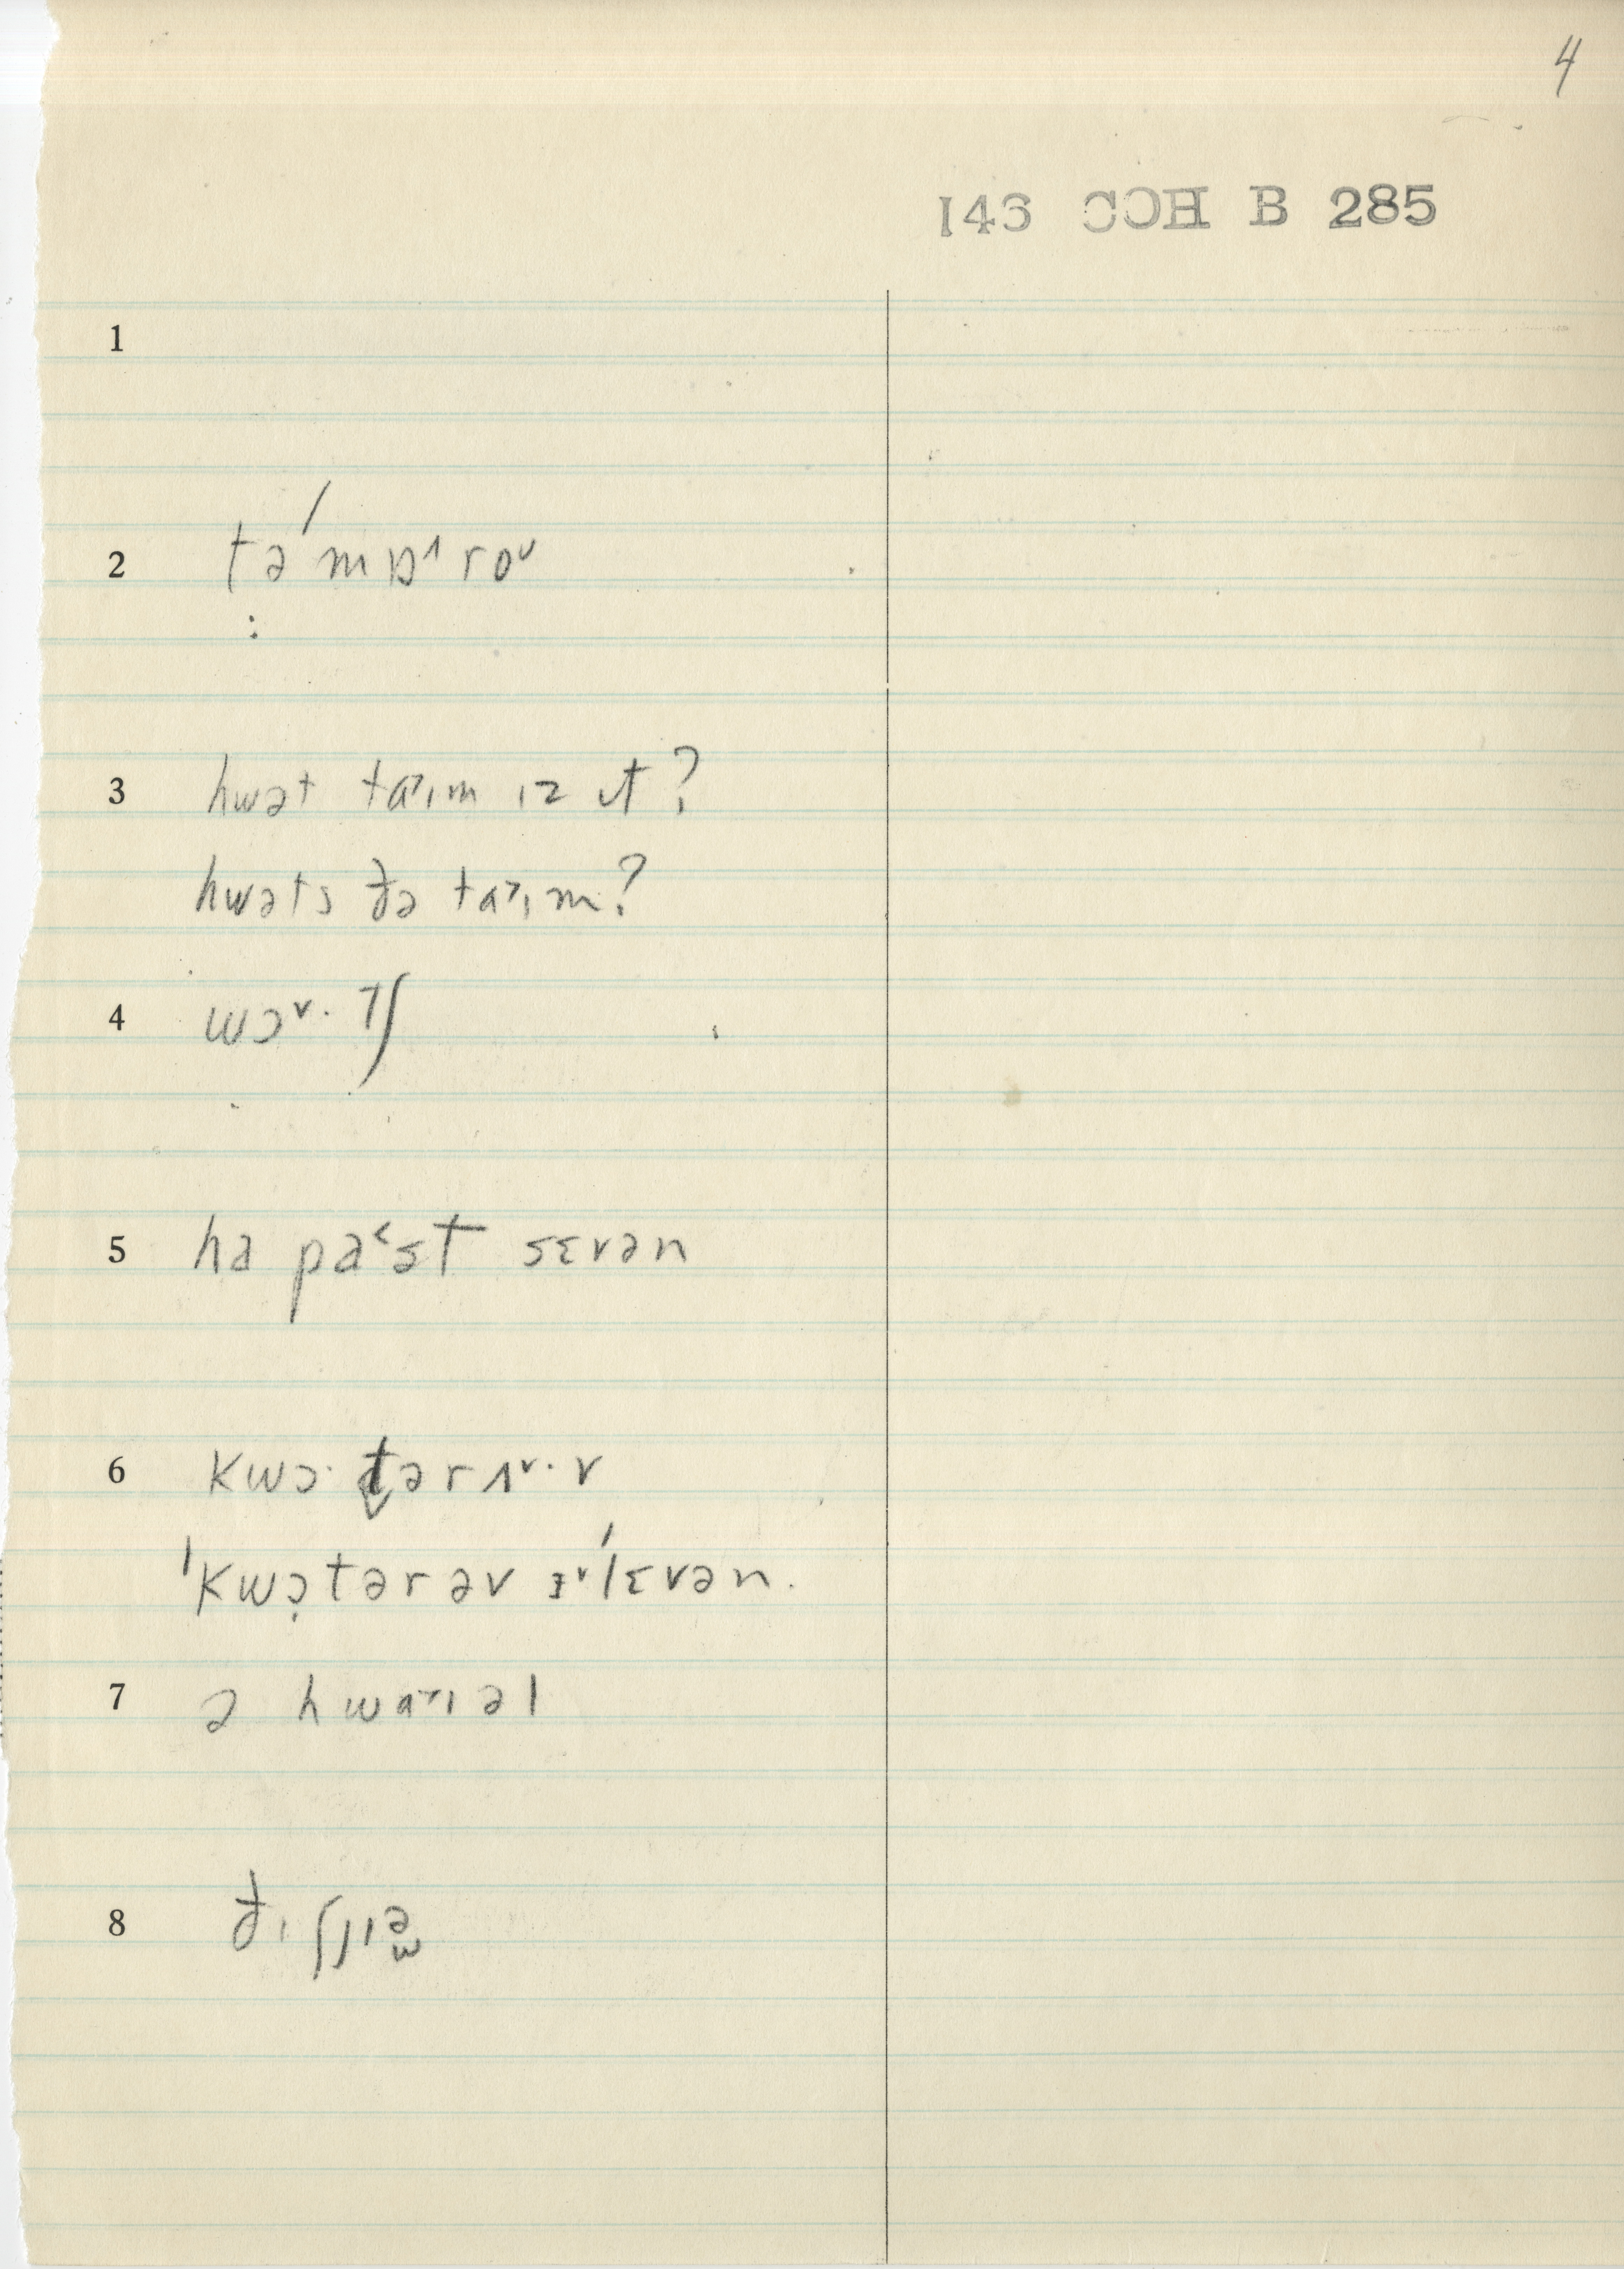 4
146 COH B 285
1
2 tə́mɒ˄roᴗ
3 hwət ta˃ɪm ɪz ɪt?
hwəts ðə ta˃ɪm?
4 wɔ˅·tʃ
5 ha pa˂st sɛvən
6 kwɔ·tər ʌ˅·v
ˈkwɔ̣tər əv ɪ˅ˈlɛvən.
7 ə hwa˃ɪəl
8 ðɪ ʃjɪə